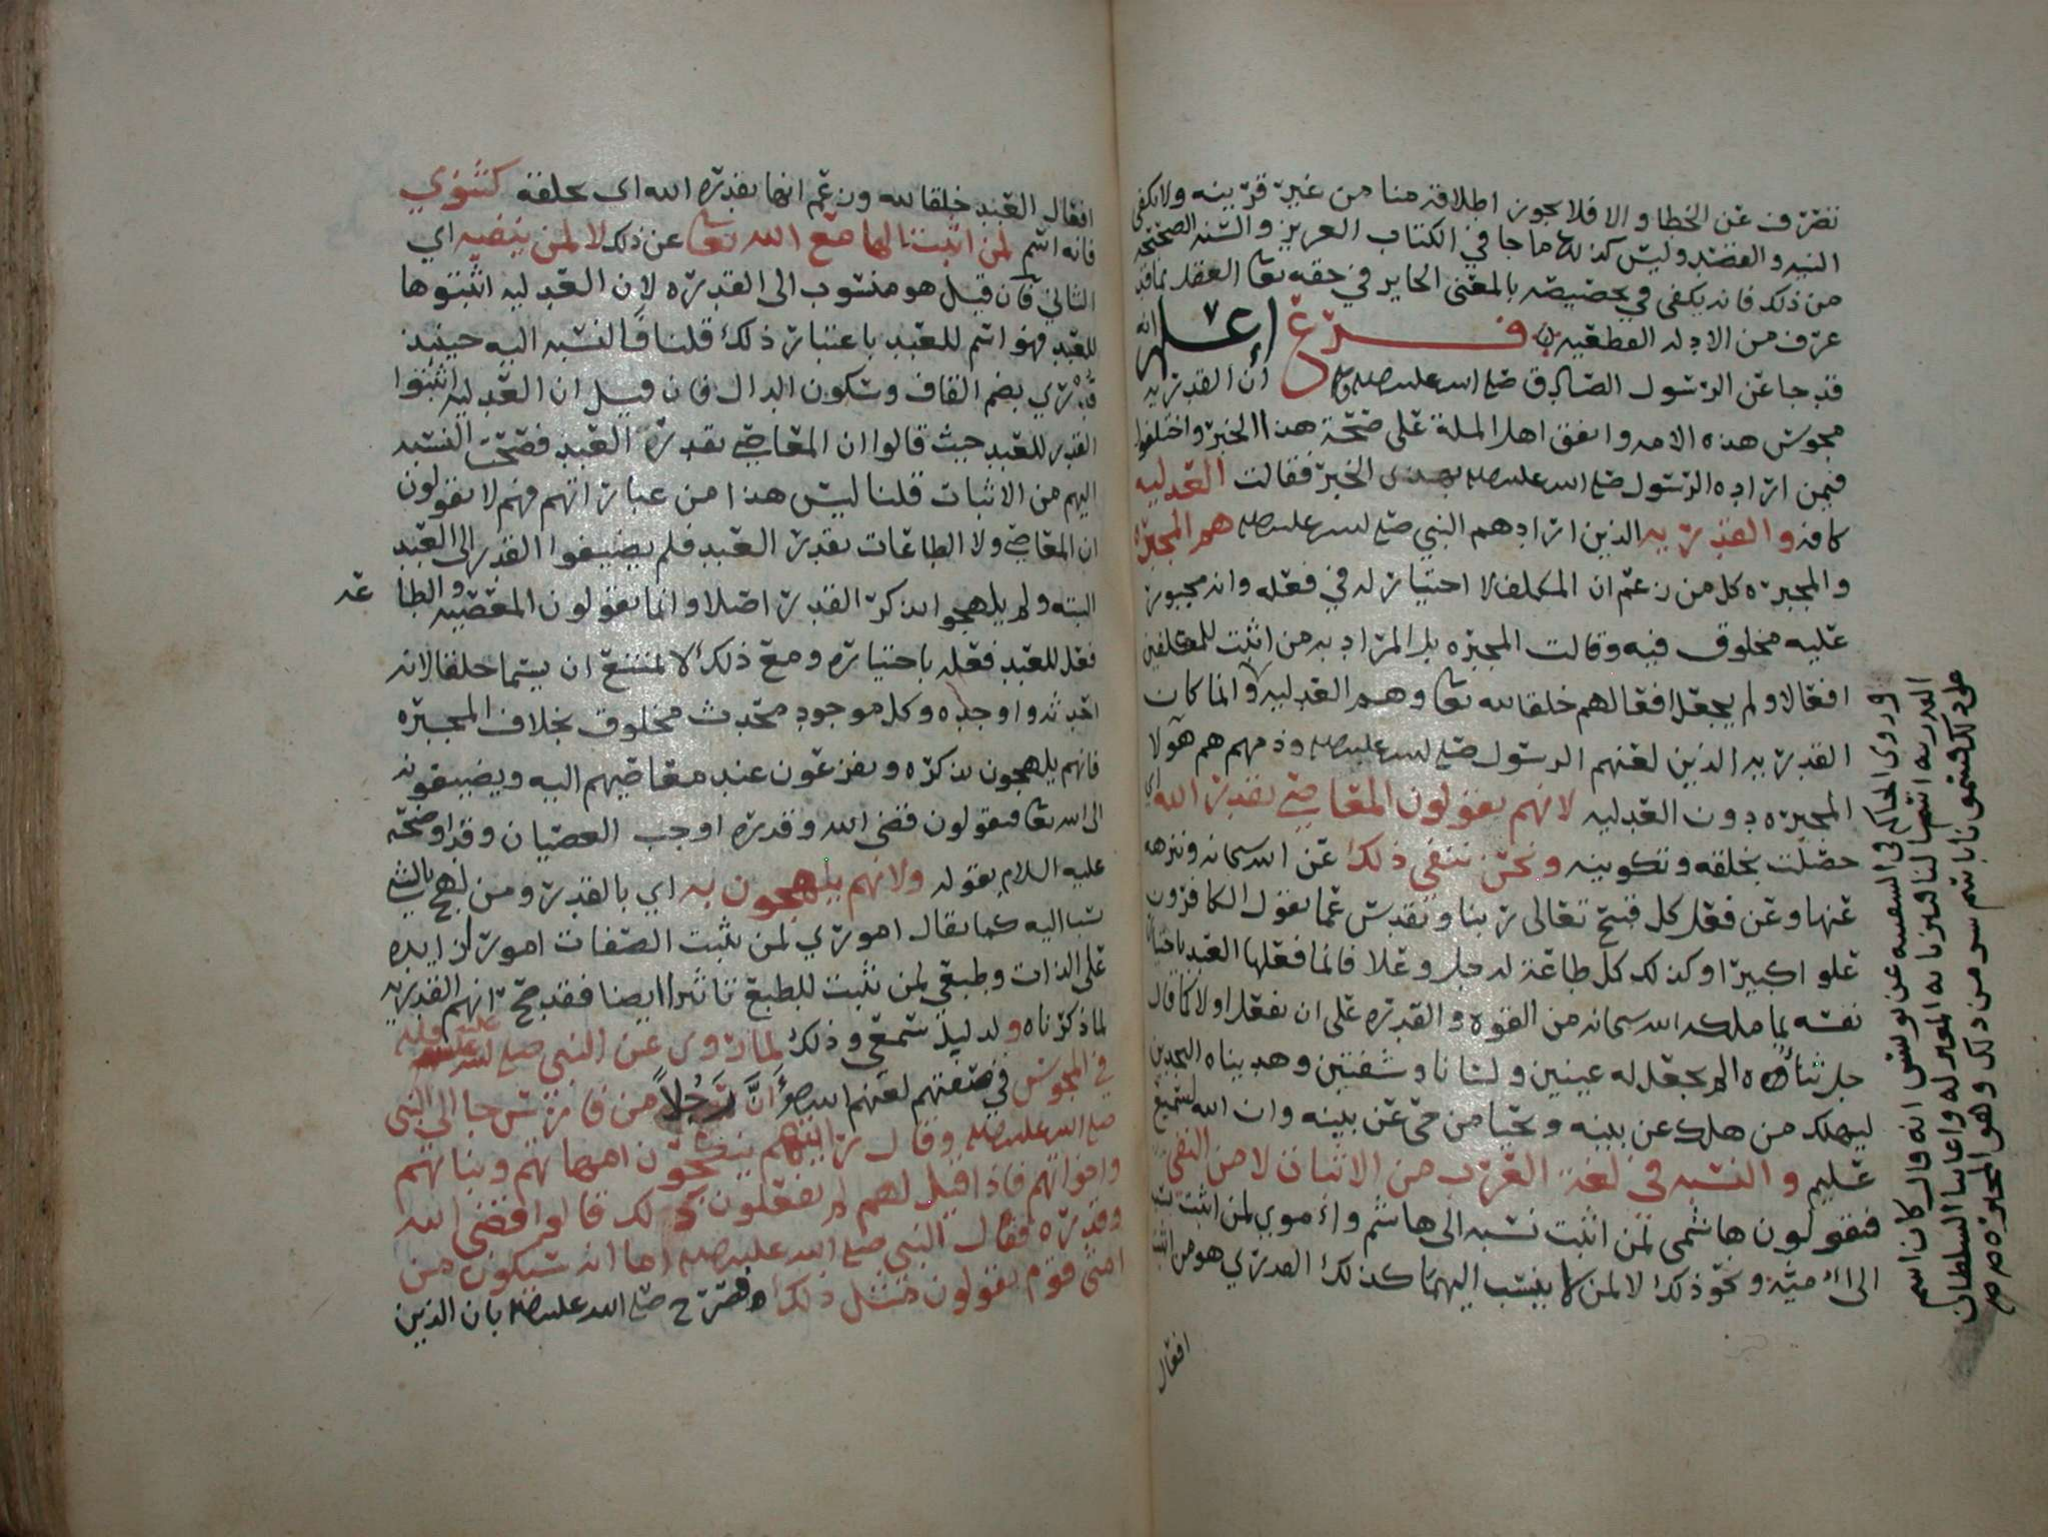 تصرف عن الخطا والا فلا يجوز اطلاقه منا من غير قرينه ولا يكفي
النيه والقصد وليس كذلك ما جا في الكتاب العزيز والسنه الصحيحه
من ذلك فانه يكفي في تخصيصه بالمعنى الجايز في حقه تعا العقل بما قد
عرف من الادله القطعيه فرع اعلم انه
قد جا عن الرسول الصادق صلى الله عليه وسلم ان القدريه
مجوس هذه الامه واتفق اهل الملة على صحة هذا الخبر واختلفوا
فيمن اراده الرسول صلى الله عليه وسلم بهذا الخبر فقالت العدليه
كافه والقدريه الذين ارادهم النبي صلى الله عليه وسلم هم المجبره
والمجبره كل من زعم ان المكلف لا اختيار له في فعله وانه مجبور
عليه مخلوق فيه وقالت المجبره بل المراد به من اثبت للمكلفين
افعالا ولم يجعل افعالهم خلقا لله تعا وهم العدليه وانما كان
القدريه الذين لعنهم الرسول صلى الله عليه وسلم وذمهم هم هولا
المجبره دون العدليه لانهم يقولون المعاصي بقدرة الله اي
حصلت بخلقه وتكوينه ونحن ننفي ذلك عن الله سبحانه وننزهه
عنها وعن فعل كل قبيح تعالى ربنا وتقدس عما يقول الكافرون
علوا كبيرا وكذلك كل طاعة له جل وعلا فانما فعلها العبد باختيار
نفسه بما ملكه الله سبحانه من القوه والقدره على ان يفعل اولا كما قال
جل ثناؤه الم يجعل له عينين ولسانا وشفتين وهديناه النجدين
ليهلك من هلك عن بينه ويحيا من حي عن بينه وان الله لسميع
عليم والنسبه في لغة العرب من الاثبات لا من النفي
فيقولون هاشمي لمن اثبت نسبه الى هاشم واموي لمن اثبت نسبه
الى اميه ونحو ذلك لا لمن لا ينسب اليهما كذلك القدري هو من اثبت
افعال
وروى الحاكم في السفينه عن يونس انه قال كان اسم
القدريه اسما لنا فنبزنا به المعتزله واعاننا السلطان
على ذلك فسمونا باسم شر من ذلك وهو المجبره
افعال العبد خلقا لله وزعم انها بقدره الله اي بخلقه كثنوي
فانه اسم لمن اثبت الها مع الله تعا عن ذلك لا لمن ينفيه اي
الثاني فان قيل هو منسوب الى القدره لان العدليه اثبتوها
للعبد فهو اسم للعبد باعتبار ذلك قلنا فالنسبه اليه حينيذ
قُدْري بضم القاف وسكون الدال فان قيل ان العدليه اثبتوا
القدر للعبد حيث قالوا ان المعاصي بقدرة العبد فصحت النسبه
اليهم من الاثبات قلنا ليس هذا من عباراتهم فهم لا يقولون
ان المعاصي ولا الطاعات بقدرة العبد فلم يضيفوا القدر الى العبد
البته ولم يلهجوا بذكر القدر اصلا وانما يقولون المعصيه والطا عه
فعل للعبد فعله باختياره ومع ذلك لا يمتنع ان يسما خلقا لانه
احدثه واوجده وكل موجود محدث مخلوق بخلاف المجبره
فانهم يلهجون بذكره ويفزعون عند معاصيهم اليه ويضيفونه
الى الله تعا فيقولون قضى الله وقدره اوجب العصيان وقد اوضحه
عليه السلام بقوله ولانهم يلهجون به اي بالقدر ومن لهج بالشي
نسب اليه كما يقال اموري لمن يثبت الصفات امورا زايده
على الذات وطبعي لمن يثبت للطبع تاثيرا ايضا فقد صح انهم القدريه
لما ذكرناه ولدليل سمعي وذلك لما روى عن النبي صلى الله عليه واله
في المجوس في صفتهم لعنهم الله وهو أنَّ رَجُلاً من فارس جا الى النبي
صلى الله عليه وسلم وقال رايتهم ينكحون امهاتهم وبناتهم
واخواتهم فاذا قيل لهم لم تفعلون ذلك قالوا قضى الله
وقدره فقال النبي صلى الله عليه وسلم اما انه سيكون من
امتي قوم يقولون مثل ذلك فصرح صلى الله عليه وسلم بان الذين